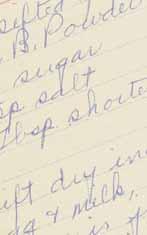 sifted
B. Powder
sugar
sp salt
tbsp shorte
ift dry in
gg & milk,